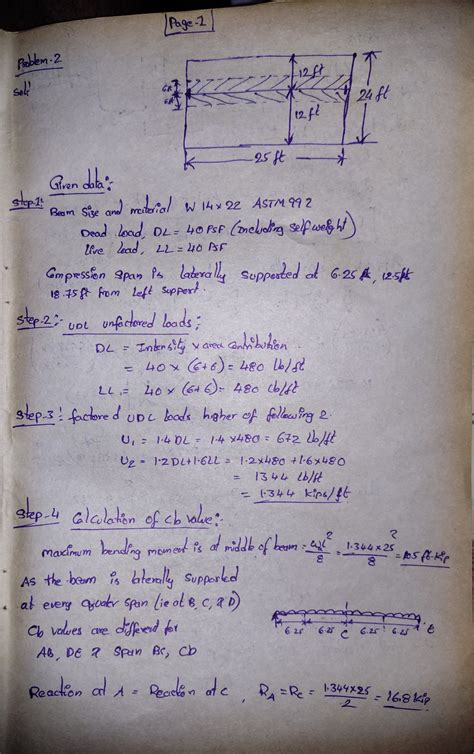 Page-1
Problem-2
Sol:
12 ft
6ft
6ft
24 ft
12 ft
25 ft
Given data:
Step-1:
Beam size and material W 14x22 ASTM 992
Dead Load, DL = 40 PSF (including self weight)
live Load, LL = 40 PSF
Compression span is laterally supported at 6.25 ft, 12.5ft
18.75 ft from left support.
Step-2:- UDL unfactored loads;
DL = Intensity x area contribution
= 40 x (6+6) = 480 lb/ft
LL = 40 x (6+6) = 480 lb/ft
Step-3: factored UDL loads higher of following 2
U1 = 1.4 DL = 1.4 x 480 = 672 lb/ft
U2 = 1.2DL+1.6LL = 1.2x480 + 1.6x480
= 1344 lb/ft
= 1.344 kips/ft
Step-4 Calculation of Cb value:-
maximum bending moment is at middle of beam = wl²/8 = 1.344x25²/8 = 105 ft-kip
As the beam is laterally supported
at every quater span (ie at B, C, & D)
Cb values are different for
AB, DE & span BC, Cb
6.25 6.25 C 6.25 6.25 E
Reaction at A = Reaction at C, RA = RC = 1.344x25/2 = 16.8 kip